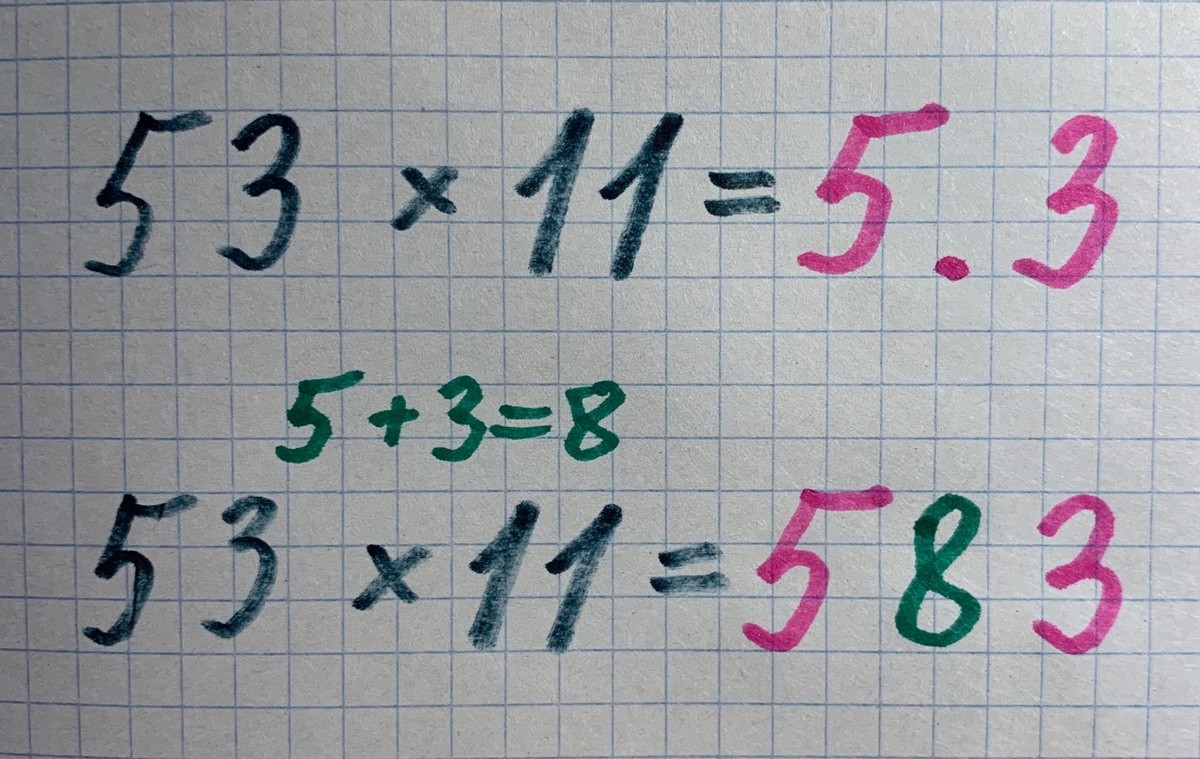 53 × 11 = 5.3
5+3=8
53 × 11 = 583